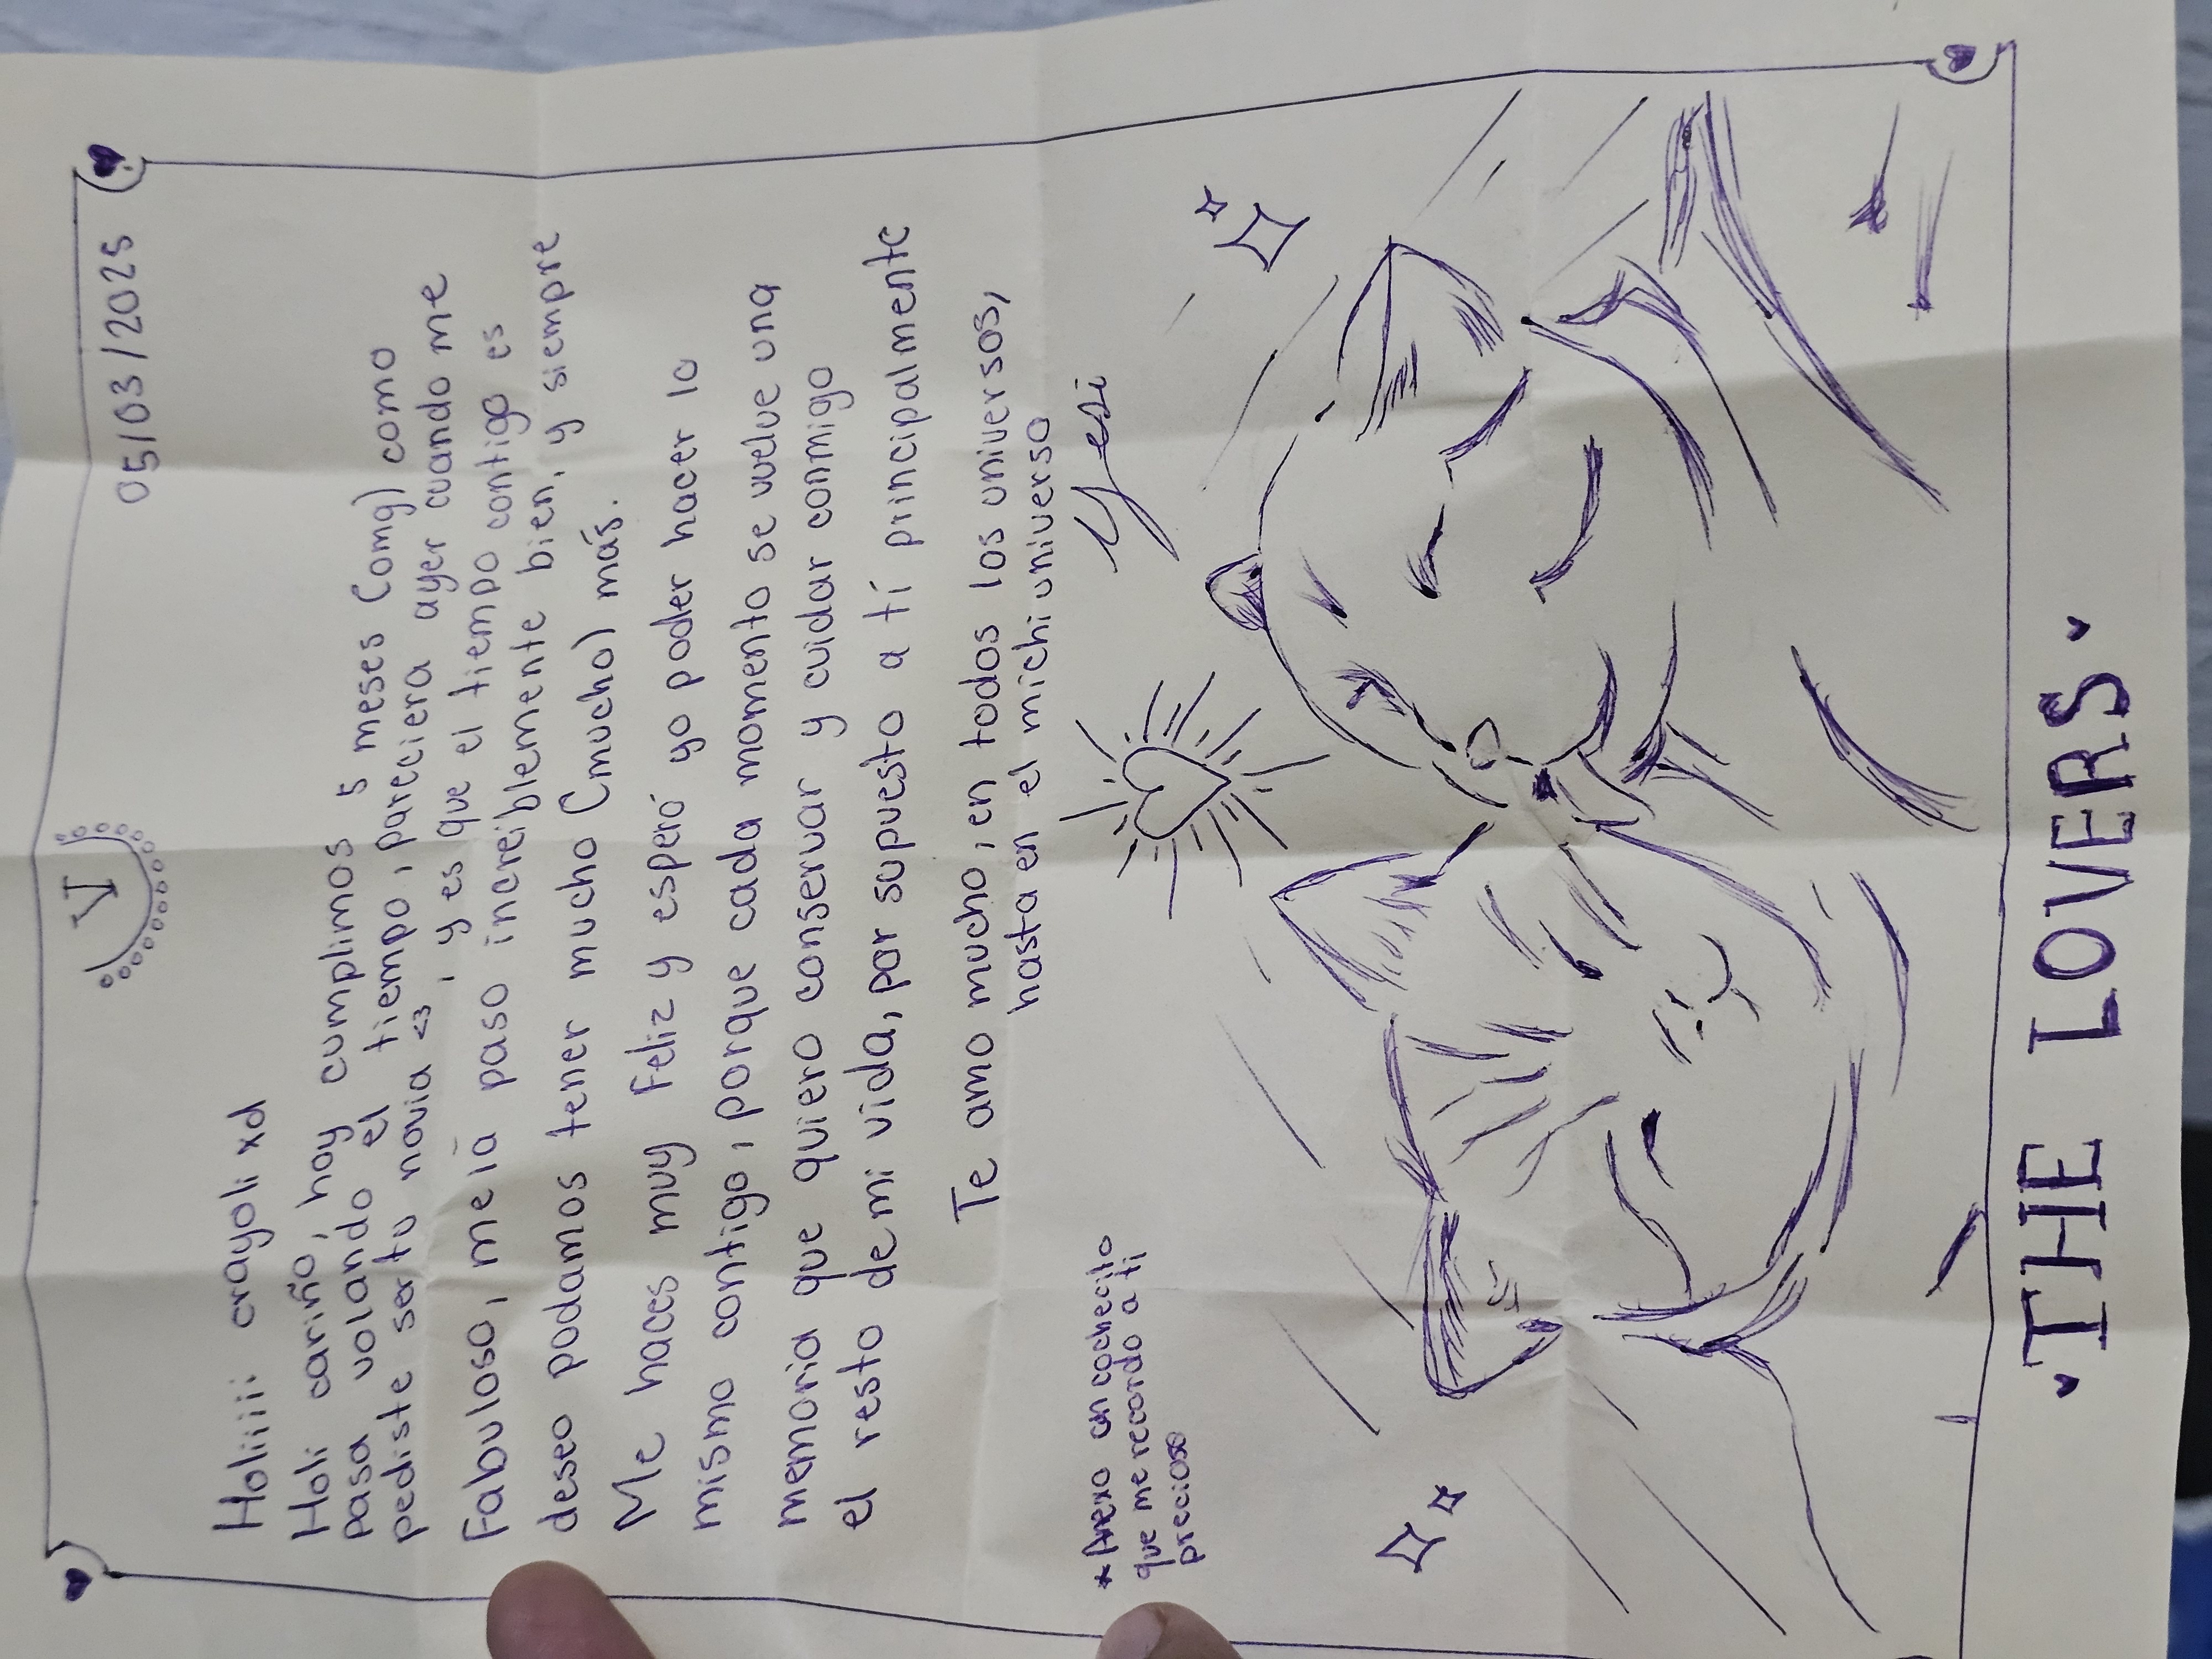 V
05/03/2025
Holiiiii crayoli xd
Holi cariño, hoy cumplimos 5 meses (omg) como
pasa volando el tiempo, pareciera ayer cuando me
pediste ser tu novia <3, y es que el tiempo contigo es
Fabuloso, me la paso increiblemente bien, y siempre
deseo podamos tener mucho (mucho) más.
Me haces muy Feliz y esperó yo poder hacer lo
mismo contigo, porque cada momento se vuelve una
memoria que quiero conservar y cuidar conmigo
el resto de mi vida, por supuesto a tí principalmente
Te amo mucho, en todos los universos,
hasta en el michiuniverso
Yesi
*Anexo un cochecito
que me recordo a ti
precioso
THE LOVERS